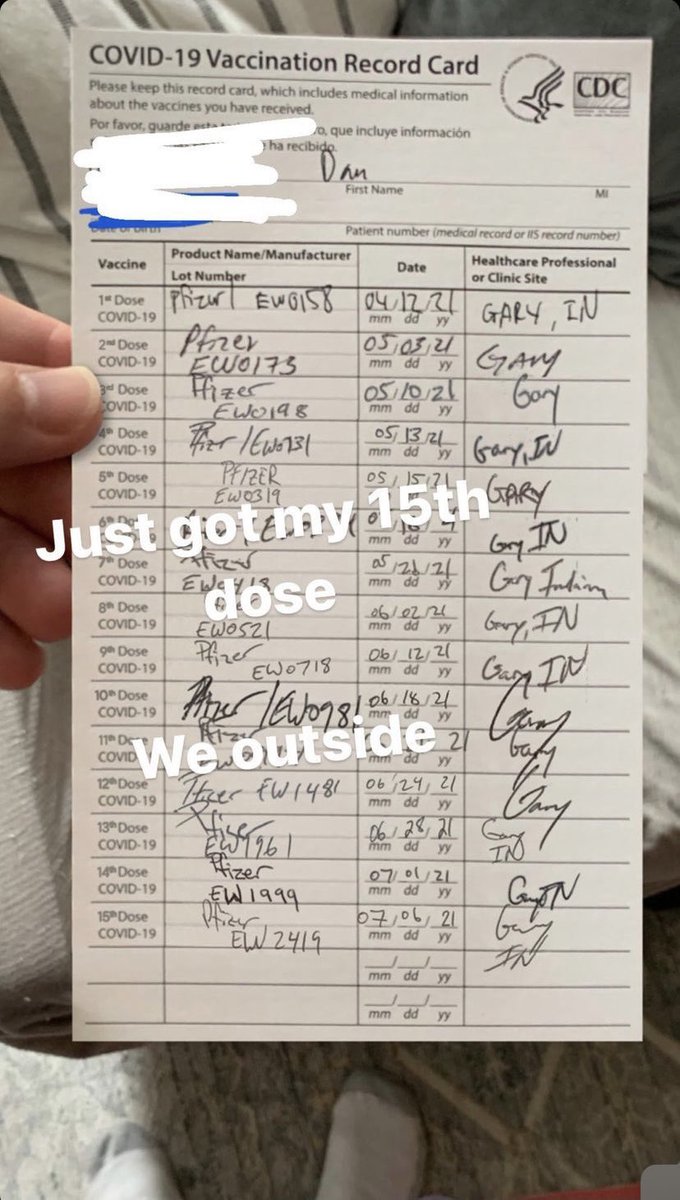 COVID-19 Vaccination Record Card
CDC
Please keep this record card, which includes medical information
about the vaccines you have received.
Por favor, guarde esta, que incluye información
ha recibido.
Dan
First Name MI
Date of birth Patient number (medical record or IIS record number)
Vaccine Product Name/Manufacturer Date Healthcare Professional
Lot Number or Clinic Site
1st Dose Pfizer EW0158 04/12/21 GARY, IN
COVID-19 mm dd yy
2nd Dose Pfizer 05/03/21 GARY
COVID-19 EW0173 mm dd yy
3rd Dose Pfizer 05/10/21 Gary
COVID-19 EW0198 mm dd yy
4th Dose Pfizer/EW0731 05/13/21 Gary, IN
COVID-19 mm dd yy
5th Dose PFIZER 05/15/21 GARY
COVID-19 EW0319 mm dd yy
Just got my 15th
dose
6th Dose Gary IN
COVID-19 mm dd yy
7th Dose Pfizer 05/21/21 Gary Indiana
COVID-19 mm dd yy
8th Dose 06/02/21 Gary, IN
COVID-19 EW0521 mm dd yy
9th Dose Pfizer 06/12/21 Gary IN
COVID-19 EW0718 mm dd yy
10th Dose Pfizer/EW0981 06/18/21 Gary
COVID-19 mm dd yy
We outside
11th Dose Pfizer 21 Gary
COVID mm dd yy
12th Dose Pfizer EW1481 06/24/21 Gary
COVID-19 mm dd yy
13th Dose Pfizer 06/28/21 Gary
COVID-19 EW1961 mm dd yy IN
14th Dose Pfizer 07/01/21 Gary IN
COVID-19 EW1999 mm dd yy
15th Dose Pfizer 07/06/21 Gary
COVID-19 EW2419 mm dd yy IN
mm dd yy
mm dd yy